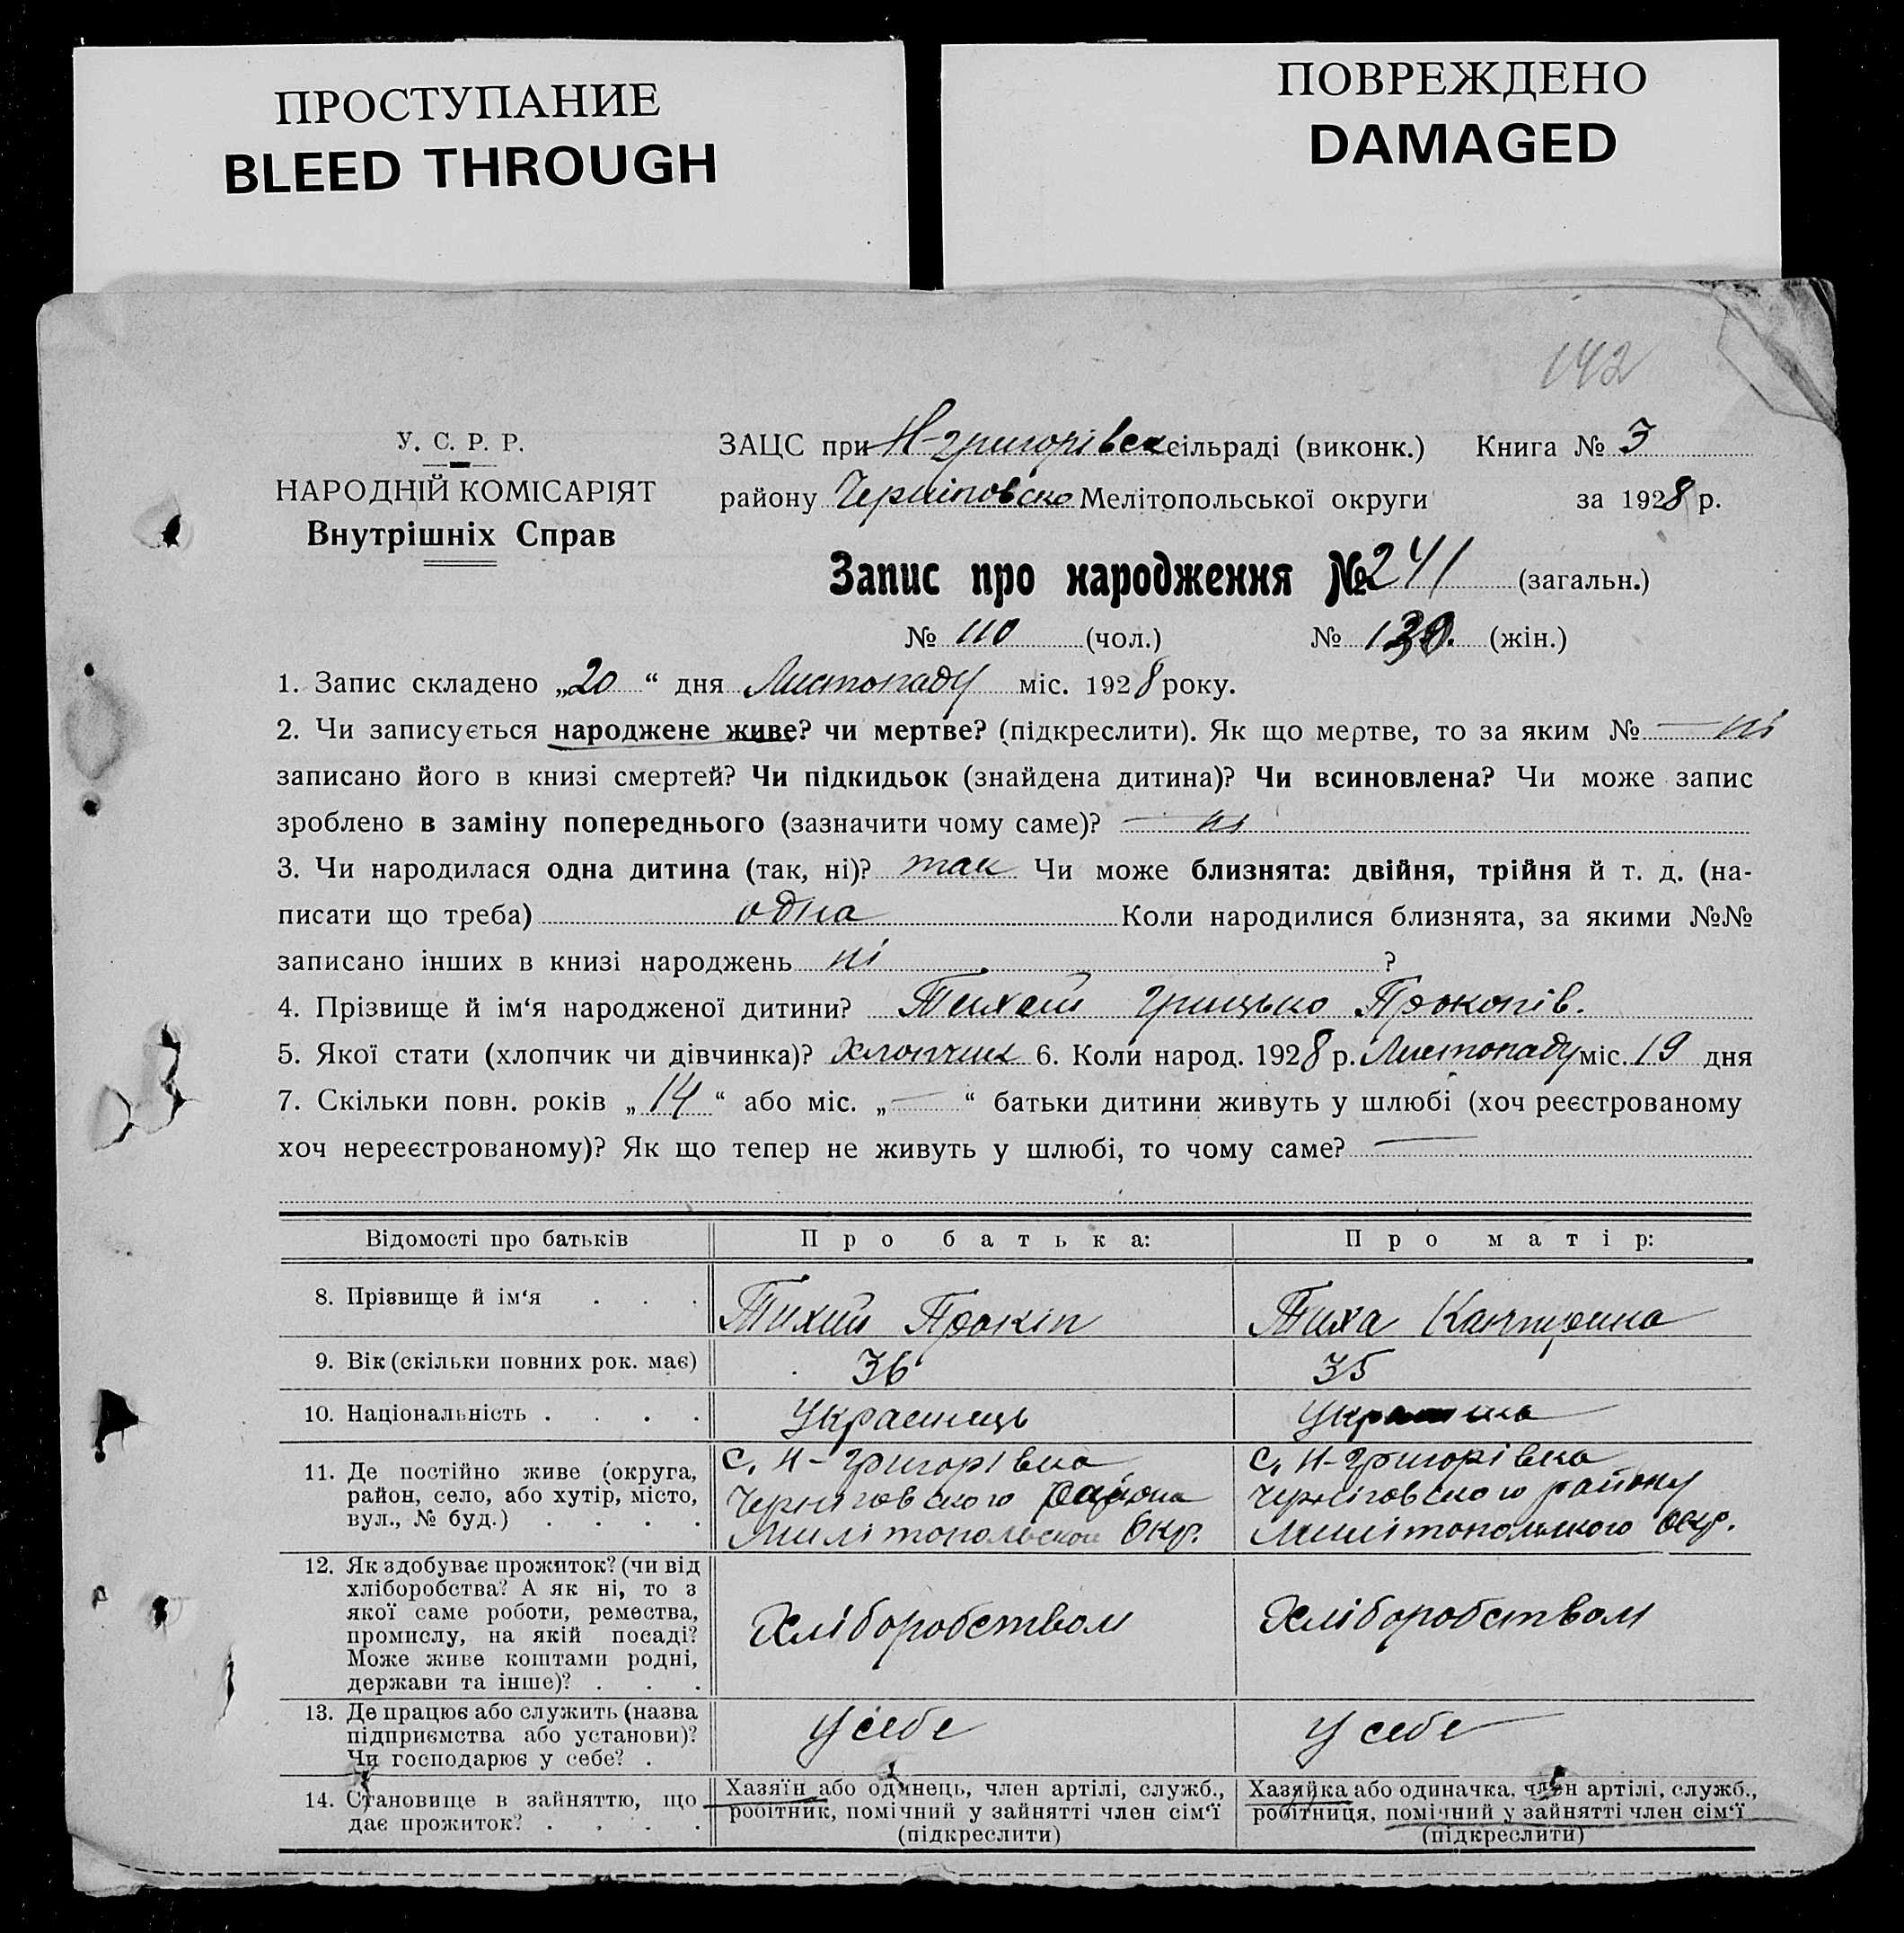 ПРОСТУПАНИЕ
BLEED THROUGH
ПОВРЕЖДЕНО
DAMAGED
142
У. С. Р. Р.
НАРОДНІЙ КОМІСАРІЯТ
Внутрішніх Справ
ЗАЦС при Н-григорівск сільраді (виконк.) Книга № 3
району Черніговско Мелітопольської округи за 1928 р.
Запис про народження № 241 (загальн.)
№ 110 (чол.) № (жін.)
1. Запис складено „20“ дня Листопаду міс. 1928 року.
2. Чи записується народжене живе? чи мертве? (підкреслити). Як що мертве, то за яким № — ні
записано його в книзі смертей? Чи підкидьок (знайдена дитина)? Чи всиновлена? Чи може запис
зроблено в заміну попереднього (зазначити чому саме)? — ні
3. Чи народилася одна дитина (так, ні)? так Чи може близнята: двійня, трійня й т. д. (на-
писати що треба) одна Коли народилися близнята, за якими №№
записано інших в книзі народжень ні ?
4. Прізвище й ім‘я народженої дитини? Тихий Грицько Прокопів.
5. Якої стати (хлопчик чи дівчинка)? Хлопчик 6. Коли народ. 1928 р. Листопаду міс. 19 дня
7. Скільки повн. років „14“ або міс. „—“ батьки дитини живуть у шлюбі (хоч реєстрованому
хоч нереєстрованому)? Як що тепер не живуть у шлюбі, то чому саме? —
Відомості про батьків Про батька: Про матір:
8. Прізвище й ім‘я . . . Тихий Прокіп Тиха Катерина
9. Вік (скільки повних рок. має) 36 35
10. Національність . . . . Украинець
11. Де постійно живе (округа,
район, село, або хутір, місто,
вул., № буд.) . . . .
с. Н-Григорівка
Черніговского района
Милітопольской Окр.
с. Н-Григорівка
Черніговского району
Милітопольского окр.
12. Як здобуває прожиток? (чи від
хліборобства? А як ні, то з
якої саме роботи, ремества,
промислу, на якій посаді?
Може живе коштами родні,
держави та інше)? . . .
Хліборобством Хліборобством
13. Де працює або служить (назва
підприємства або установи)?
Чи господарює у себе? .
У себе У себе
14. Становище в зайняттю, що
дає прожиток? . . . .
Хазяїн або одинець, член артілі, служб.,
робітник, помічний у зайнятті член сім‘ї
(підкреслити)
Хазяйка або одиначка, член артілі, служб.,
робітниця, помічний у зайнятті член сім‘ї
(підкреслити)